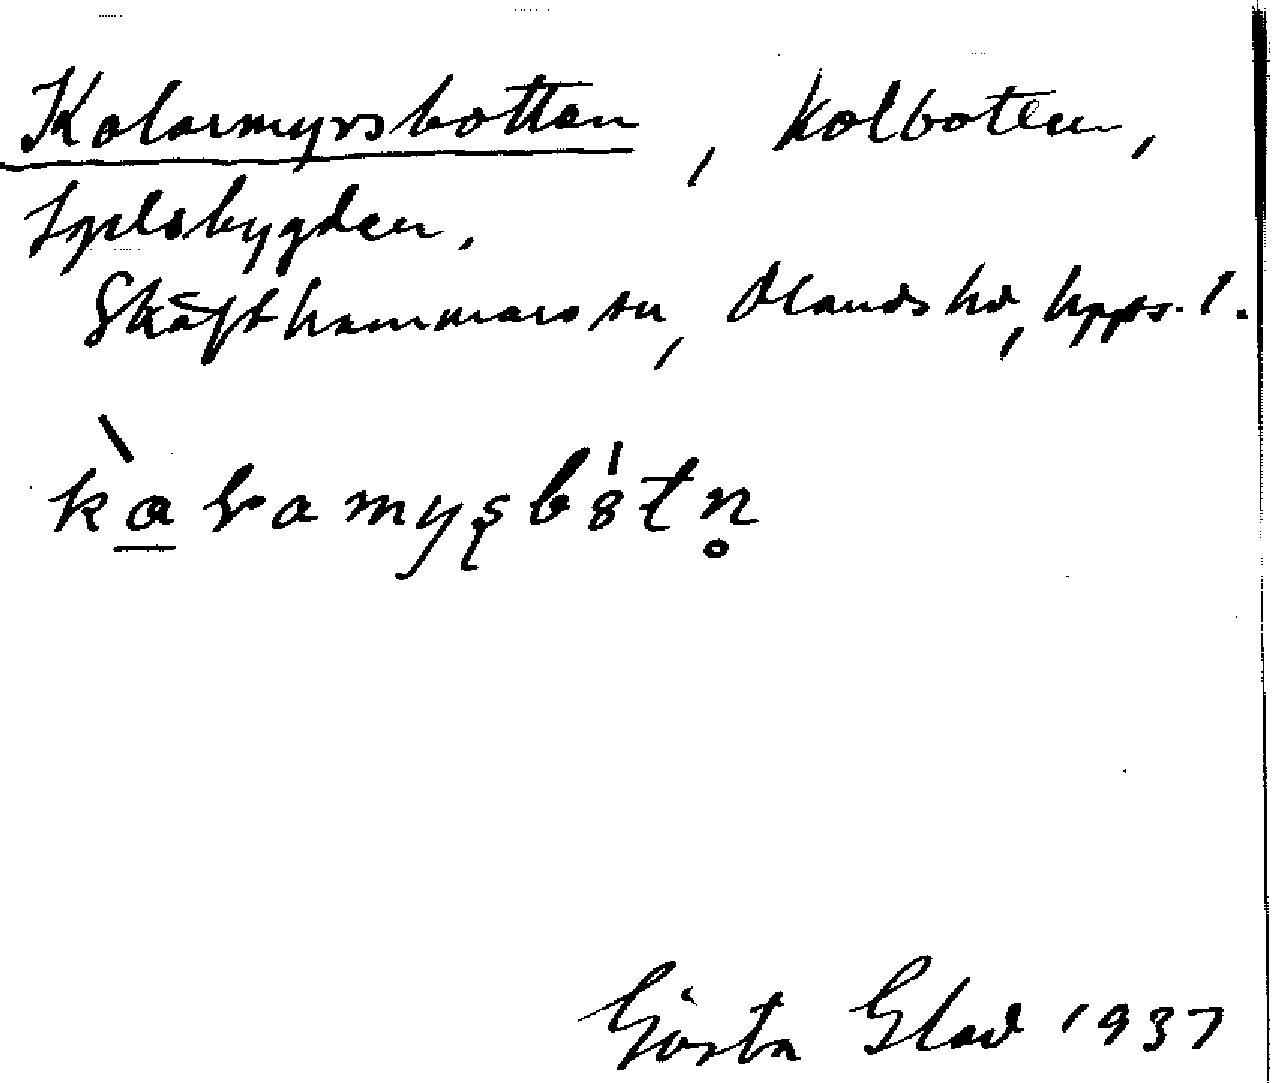 Kolarmyrsbotten, kolboten,
Sjplsbygden.
Skäfthammars sn, Olands hd, Upps. l.
kɑ̀ɽamyʂbótn̥
Gösta Glad 1937